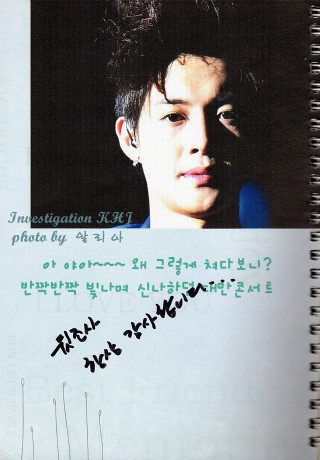 Investigation KHJ
photo by 살리나
아 야아~~~ 왜 그렇게 쳐다보니?
반짝반짝 빛나며 신나하던 대만콘서트
I LOVE
뒷조사
항상 감사합니다...
Best Friend